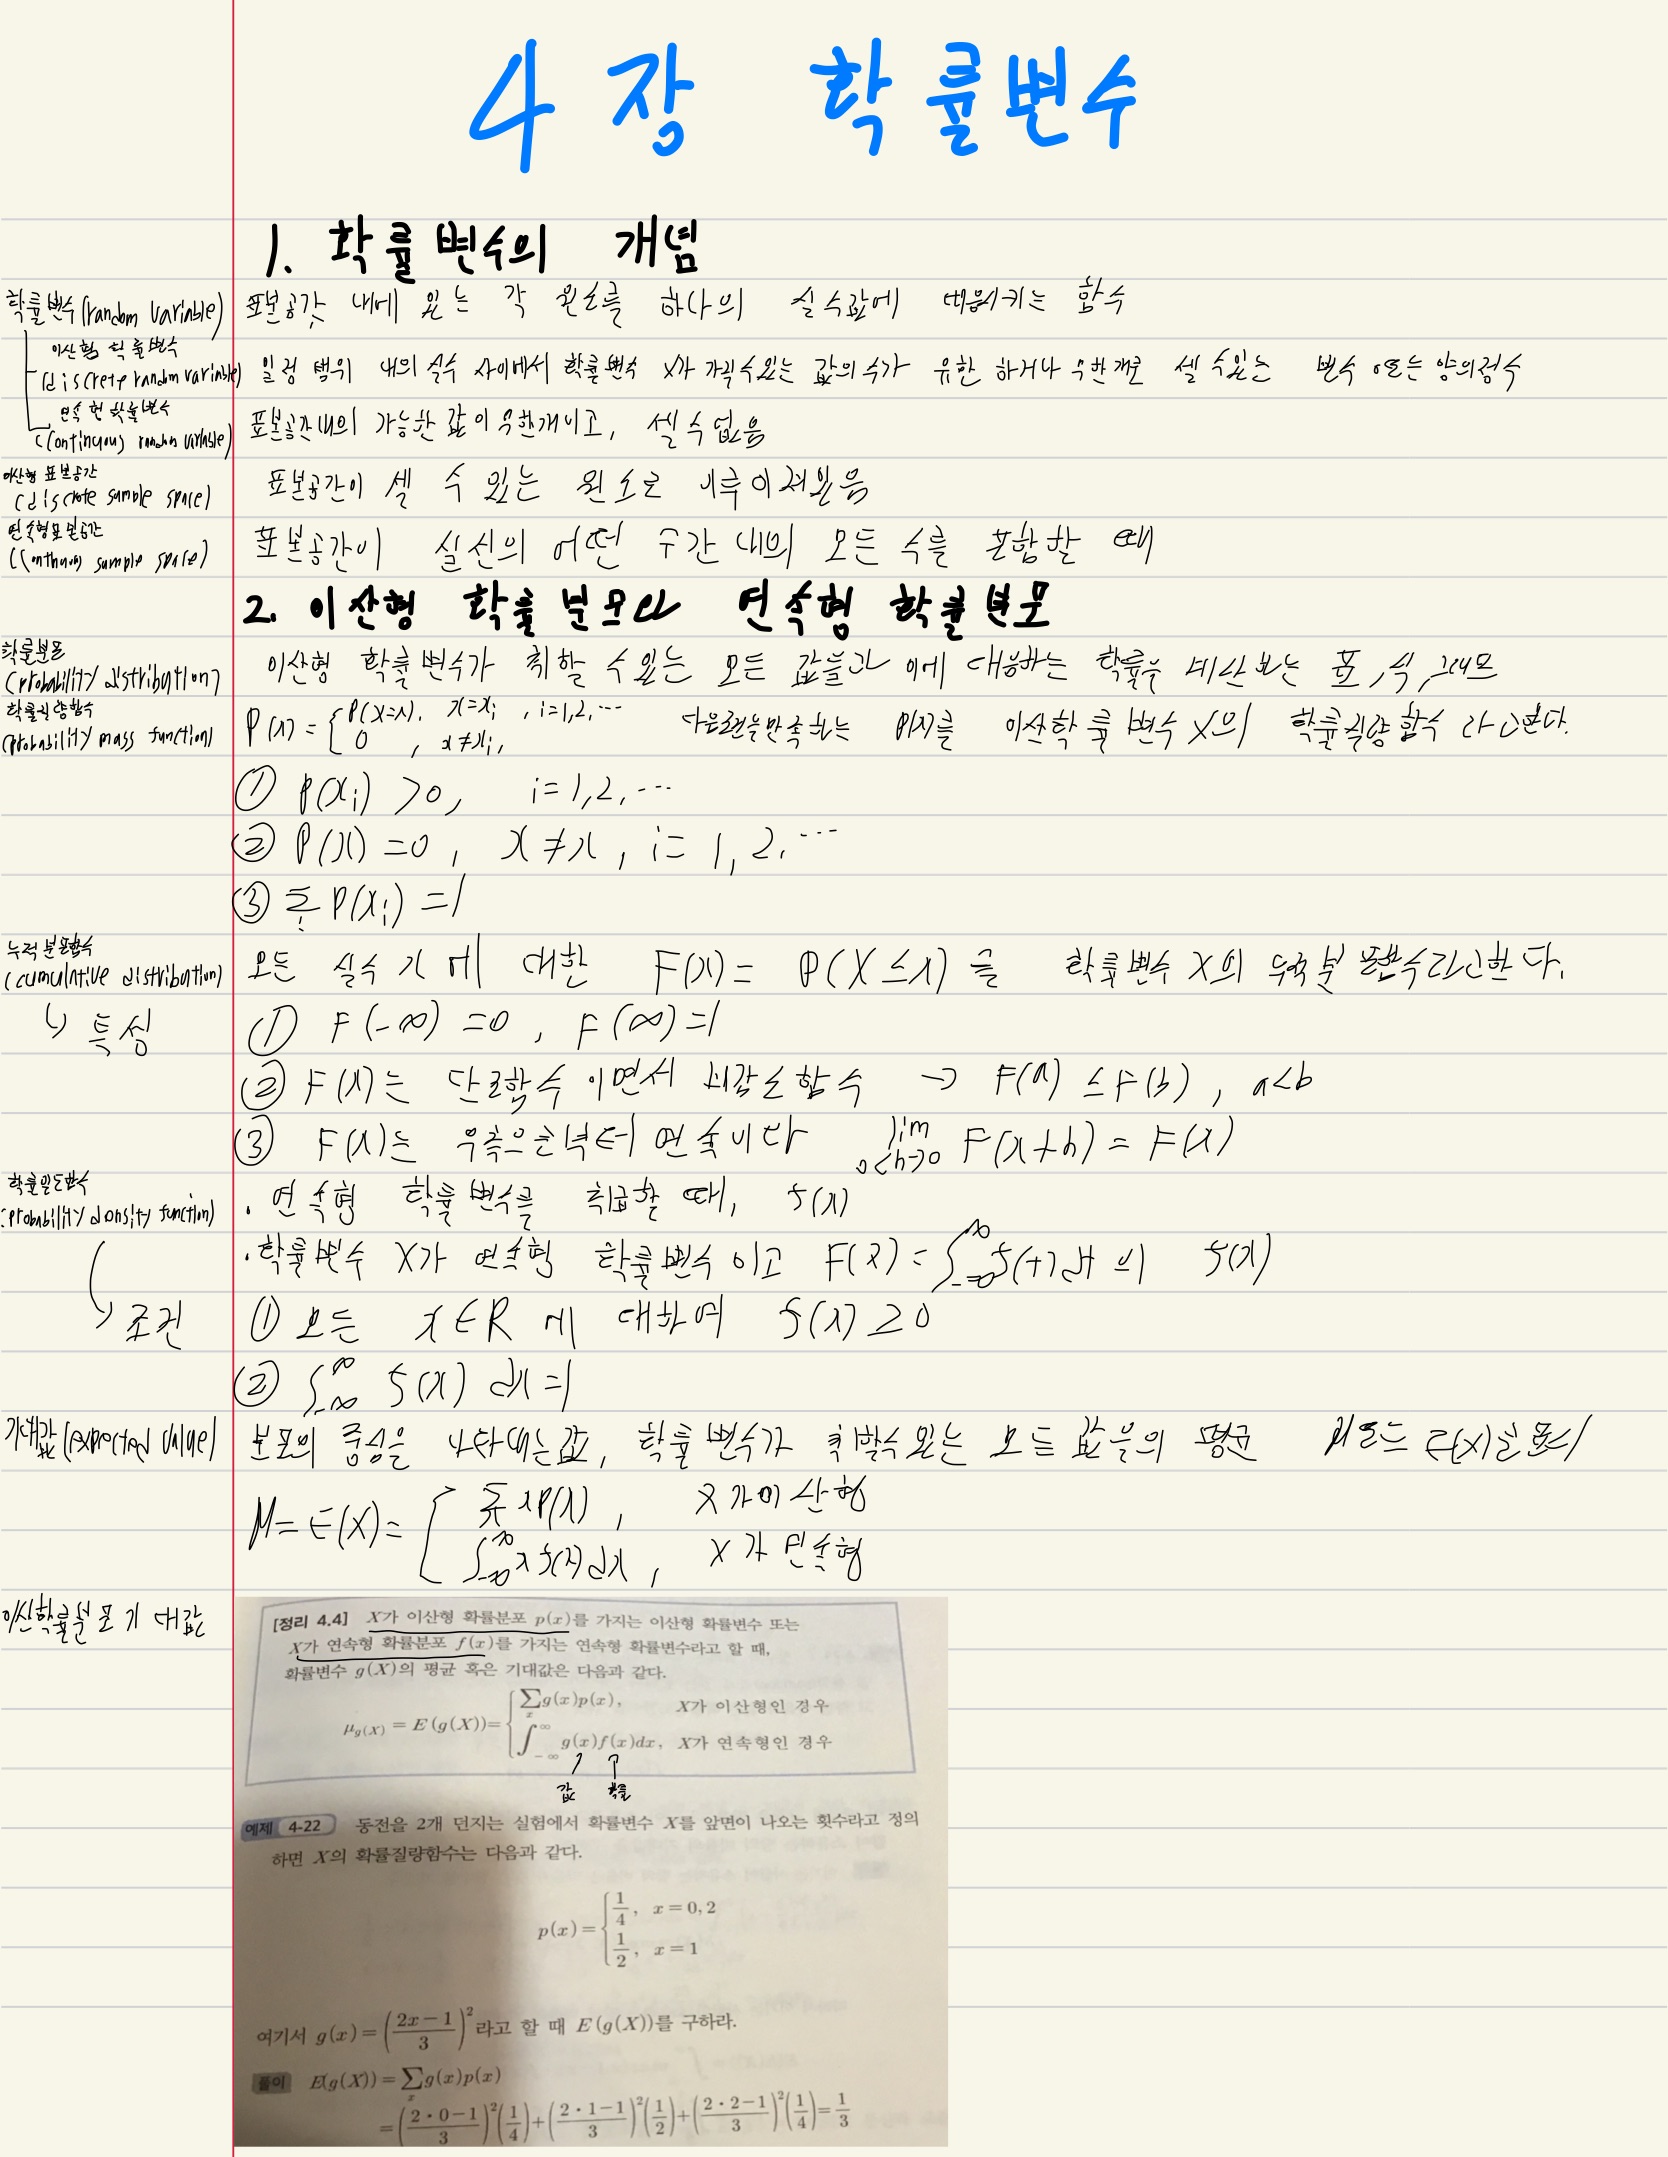 4장 확률변수
1. 확률변수의 개념
확률변수(random variable) 표본공간 내에 있는 각 원소를 하나의 실수값에 대응시키는 함수
이산형 확률변수
(discrete random variable) 일정 범위 내의 실수 사이에서 확률변수 X가 가질 수 있는 값의 수가 유한 하거나 무한개로 셀 수 있는 변수 또는 양의정수
연속형 확률변수
(continuous random variable) 표본공간내의 가능한 값이 무한개이고, 셀 수 없음
이산형 표본공간
(discrete sample space) 표본공간이 셀 수 있는 원소로 이루어져있음
연속형표본공간
(continuous sample space) 표본공간이 실선의 어떤 구간 내의 모든 수를 포함할 때
2. 이산형 확률분포와 연속형 확률분포
확률분포
(probability distribution) 이산형 확률변수가 취할 수 있는 모든 값들과 이에 대응하는 확률을 표, 식, 그래프
확률질량함수
(probability mass function) P(x) = { P(X=x), x=xᵢ, i=1,2,⋯
0, x≠xᵢ, 다음조건을만족하는 P(x)를 이산확률변수 X의 확률질량함수 라고한다.
① P(xᵢ) >0, i=1,2,⋯
② P(x) =0, x≠x, i=1,2,⋯
③ Σᵢ P(xᵢ) =1
누적분포함수
(cumulative distribution) 모든 실수 x에 대한 F(x) = P(X≤x) 를 확률변수 X의 누적분포함수라고한다.
↳ 특성 ① F(-∞) =0, F(∞)=1
② F(x)는 단조함수 이면서 비감소함수 → F(a) ≤F(b), a<b
③ F(x)는 우측으로부터 연속이다 lim 0<h→0 F(x+h) = F(x)
확률밀도함수
(probability density function) · 연속형 확률변수를 취급할 때, f(x)
· 확률변수 X가 연속형 확률변수 이고 F(x) = ∫_{-∞}^{∞} f(t)dt 의 f(x)
조건 ① 모든 x∈R 에 대하여 f(x) ≥0
② ∫_{-∞}^{∞} f(x) dx =1
기대값(expected value) 분포의 중심을 나타내는값, 확률변수가 취할수있는 모든 값들의 평균 μ또는 E(X)로 표시
μ= E(X) = [ Σₓ xP(x), X가이산형
∫_{-∞}^{∞} x f(x)dx, X가 연속형
이산확률분포기대값
[정리 4.4] X가 이산형 확률분포 p(x)를 가지는 이산형 확률변수 또는
X가 연속형 확률분포 f(x)를 가지는 연속형 확률변수라고 할 때,
확률변수 g(X)의 평균 혹은 기대값은 다음과 같다.
μ_{g(X)} = E(g(X)) = { Σₓ g(x)p(x), X가 이산형인 경우
∫_{-∞}^{∞} g(x)f(x)dx, X가 연속형인 경우
값 확률
예제 4-22 동전을 2개 던지는 실험에서 확률변수 X를 앞면이 나오는 횟수라고 정의
하면 X의 확률질량함수는 다음과 같다.
p(x) = { 1/4, x=0, 2
1/2, x=1
여기서 g(x) = ((2x-1)/3)² 라고 할 때 E(g(X))를 구하라.
풀이 E(g(X)) = Σₓ g(x)p(x)
= ((2·0-1)/3)² (1/4) + ((2·1-1)/3)² (1/2) + ((2·2-1)/3)² (1/4) = 1/3